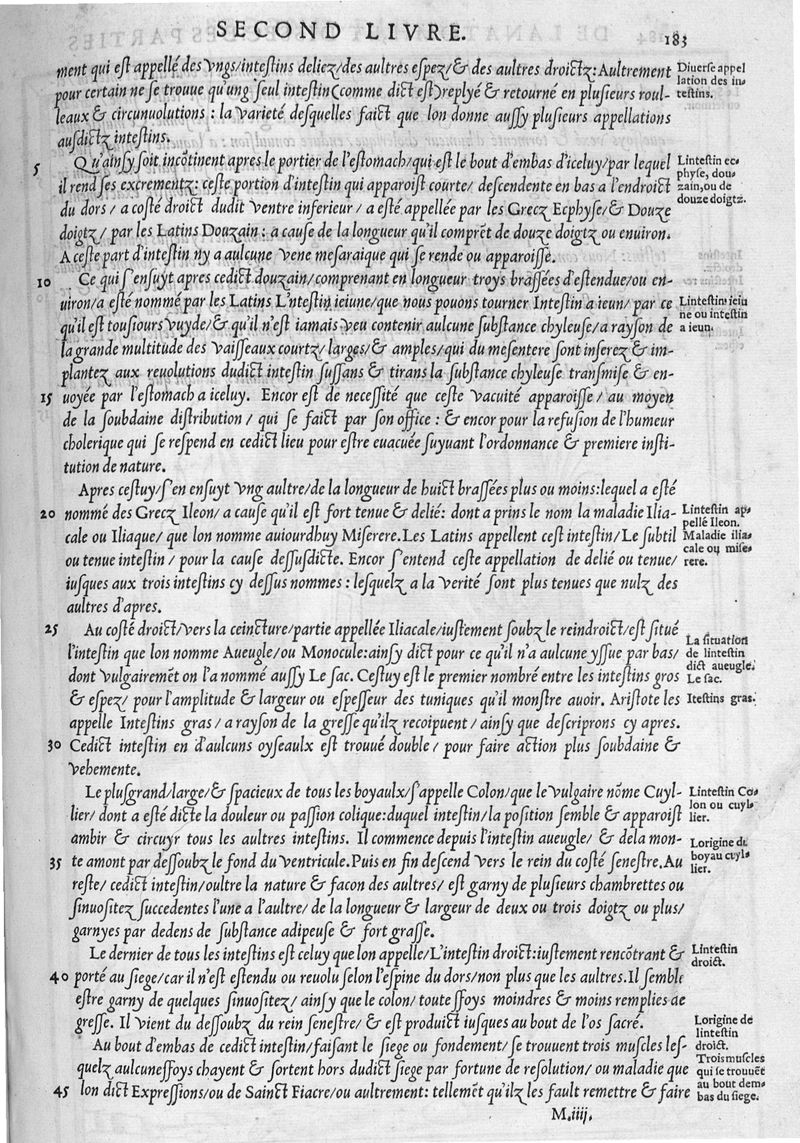 SECOND LIVRE.
183
ment qui est appellé des vngs/intestins deliez/des aultres espez/& des aultres droictz: Aultrement
pour certain ne se trouue qu'ung seul intestin (comme dict est) replyé & retourné en plusieurs roul-
leaux & circunuolutions : la varieté desquelles faict que lon donne aussy plusieurs appellations
ausdictz intestins.
Diuerse appel
lation des in-
testins.
5 Qu'ainsy soit incōtinent apres le portier de l'estomach/qui est le bout d'embas d'iceluy/par lequel
il rend ses excrementz: ceste portion d'intestin qui apparoist courte/ descendente en bas a l'endroict
du dors / a costé droict dudit ventre inferieur / a esté appellée par les Grecz Ecphyse/& Douze
doigtz / par les Latins Douzain : a cause de la longueur qu'il comprēt de douze doigtz ou enuiron.
A ceste part d'intestin n'y a aulcune vene mesaraique qui se rende ou apparoisse.
Lintestin ec-
physe, dou-
zain, ou de
douze doigtz.
10 Ce qui s'ensuyt apres cedict douzain/comprenant en longueur troys brassées d'estendue/ou en-
uiron/a esté nommé par les Latins L'ntestin ieiune/que nous pouons tourner Intestin a ieun/ par ce
qu'il est tousiours vuyde/& qu'il n'est iamais veu contenir aulcune substance chyleuse/a rayson de
la grande multitude des vaisseaux courtz/ larges/& amples/qui du mesentere sont inserez & im-
plantez aux reuolutions dudict intestin sussans & tirans la substance chyleuse transmise & en-
15 uoyée par l'estomach a iceluy. Encor est de necessité que ceste vacuité apparoisse / au moyen
de la soubdaine distribution / qui se faict par son office : & encor pour la refusion de l'humeur
cholerique qui se respend en cedict lieu pour estre euacuée suyuant l'ordonnance & premiere insti-
tution de nature.
Lintestin ieiu
ne ou intestin
a ieun.
Apres cestuy/s'en ensuyt vng aultre/de la longueur de huict brassées plus ou moins:lequel a esté
20 nommé des Grecz Ileon/ a cause qu'il est fort tenue & delié: dont a prins le nom la maladie Ilia-
cale ou Iliaque/ que lon nomme auiourdhuy Miserere. Les Latins appellent cest intestin/Le subtil
ou tenue intestin / pour la cause dessusdicte. Encor s'entend ceste appellation de delié ou tenue/
iusques aux trois intestins cy dessus nommes : lesquelz a la verité sont plus tenues que nulz des
aultres d'apres.
Lintestin ap-
pellé Ileon.
Maladie ilia-
cale ou mise-
rere.
25 Au costé droict/vers la ceincture/partie appellée Iliacale/iustement soubz le reindroict/est situé
l'intestin que lon nomme Aueugle/ou Monocule:ainsy dict pour ce qu'il n'a aulcune yssue par bas/
dont vulgairemēt on l'a nommé aussy Le sac. Cestuy est le premier nombré entre les intestins gros
& espez/ pour l'amplitude & largeur ou espesseur des tuniques qu'il monstre auoir. Aristote les
appelle Intestins gras/ a rayson de la gresse qu'ilz recoipuent / ainsy que descriprons cy apres.
30 Cedict intestin en d'aulcuns oyseaulx est trouué double / pour faire action plus soubdaine &
vehemente.
La situation
de lintestin
dict aueugle.
Le sac.
Itestins gras.
Le plusgrand/large/& spacieux de tous les boyaulx/s'appelle Colon/que le vulgaire nōme Cuyl-
lier/ dont a esté dicte la douleur ou passion colique:duquel intestin/la position semble & apparoist
ambir & circuyr tous les aultres intestins. Il commence depuis l'intestin aueugle/ & dela mon-
35 te amont par dessoubz le fond du ventricule.Puis en fin descend vers le rein du costé senestre. Au
reste/ cedict intestin/oultre la nature & facon des aultres/ est garny de plusieurs chambrettes ou
sinuositez succedentes l'une a l'aultre/ de la longueur & largeur de deux ou trois doigtz ou plus/
garnyes par dedens de substance adipeuse & fort grasse.
Lintestin Co-
lon ou cuyl-
lier.
Lorigine du
boyau cuyl-
lier.
Le dernier de tous les intestins est celuy que lon appelle/L'intestin droict:iustement rencōtrant &
40 porté au siege/car il n'est estendu ou reuolu selon l'espine du dors/non plus que les aultres.Il semble
estre garny de quelques sinuositez/ ainsy que le colon/ toutessoys moindres & moins remplies de
gresse. Il vient du dessoubz du rein senestre/ & est produict iusques au bout de l'os sacré.
Lintestin
droict.
Lorigine de
lintestin
droict.
Au bout d'embas de cedict intestin/faisant le siege ou fondement/ se trouuent trois muscles les-
quelz aulcunessoys chayent & sortent hors dudict siege par fortune de resolution/ ou maladie que
45 lon dict Expressions/ou de Sainct Fiacre/ou aultrement: tellemēt qu'ilz les fault remettre & faire
Trois muscles
qui se trouuēt
au bout dem-
bas du siege.
M.iiij.